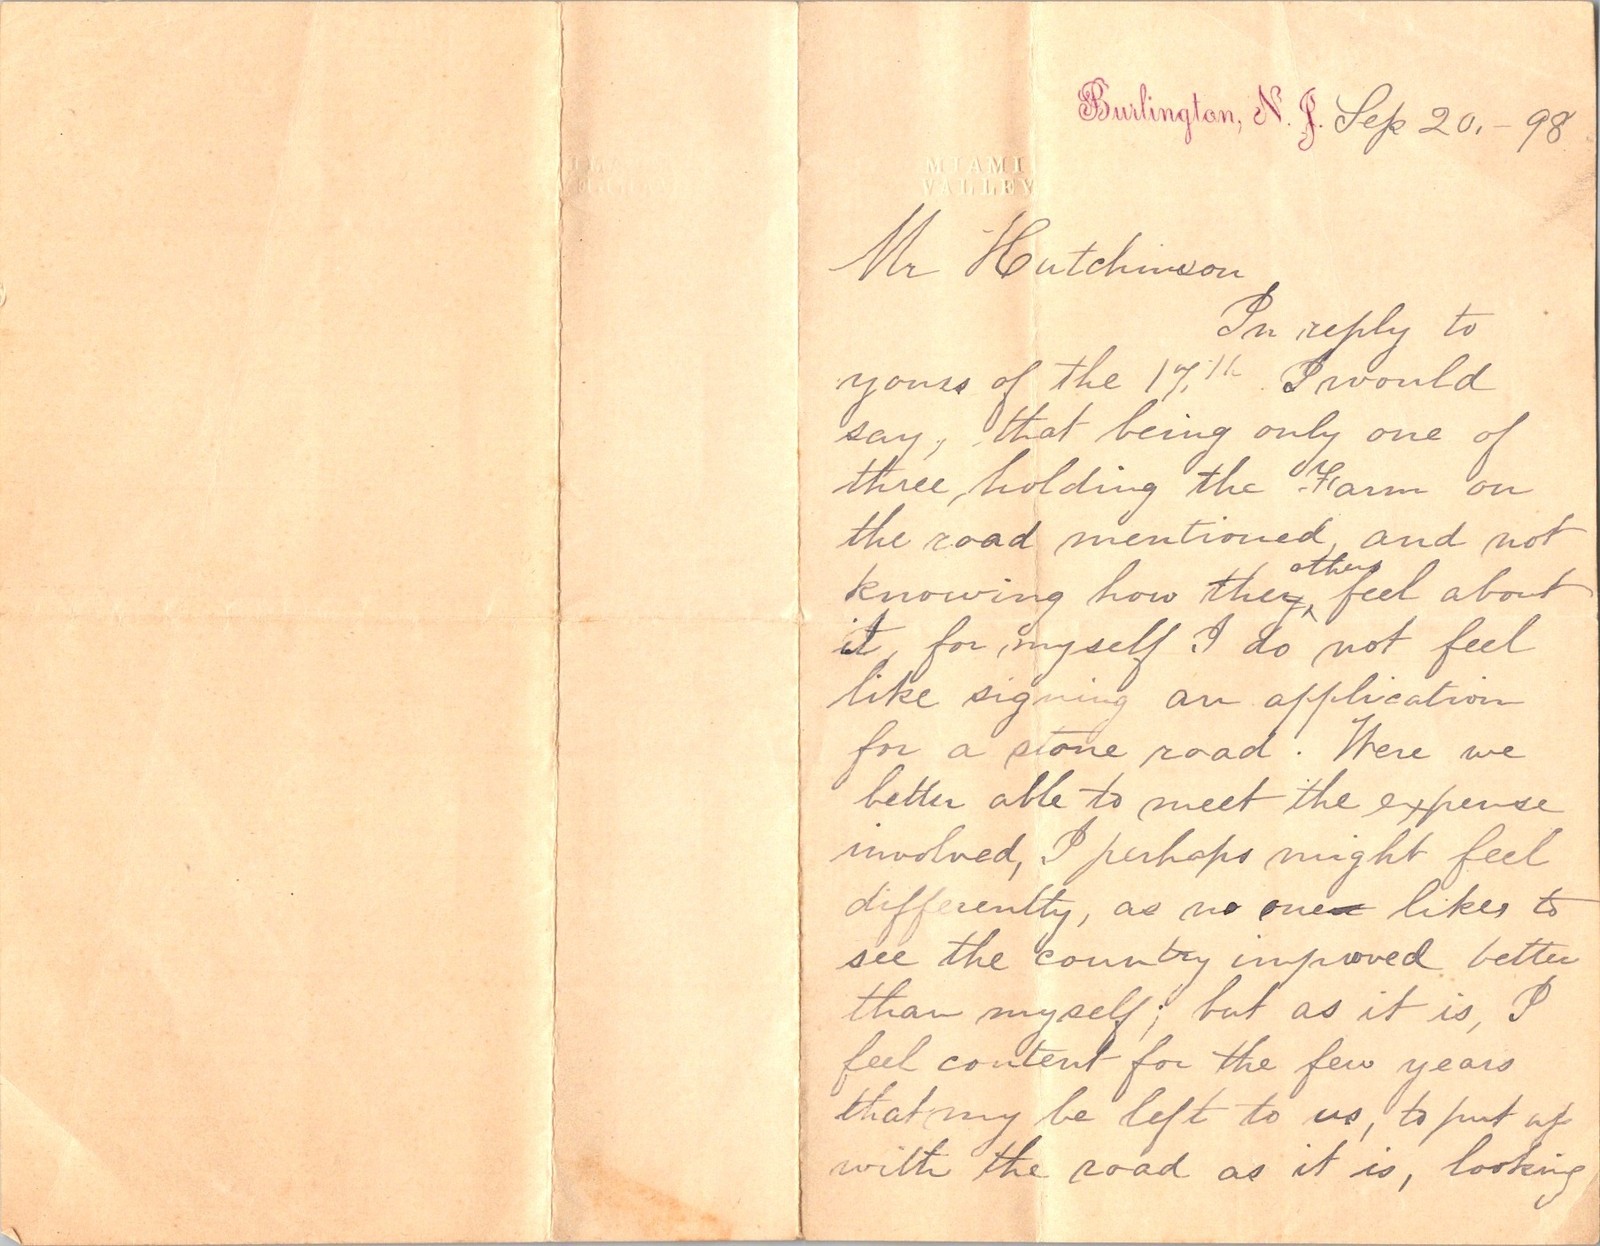 Burlington, N. J. Sep 20, - 98
MIAMI
VALLEY
Mr Hutchinson
In reply to
yours of the 17,th I would
say, that being only one of
three, holding the Farm on
the road mentioned, and not
knowing how the others feel about
it, for myself I do not feel
like signing an application
for a stone road. Were we
better able to meet the expense
involved, I perhaps might feel
differently, as no one likes to
see the country improved better
than myself; but as it is, I
feel content for the few years
that my be left to us, to put up
with the road as it is, looking